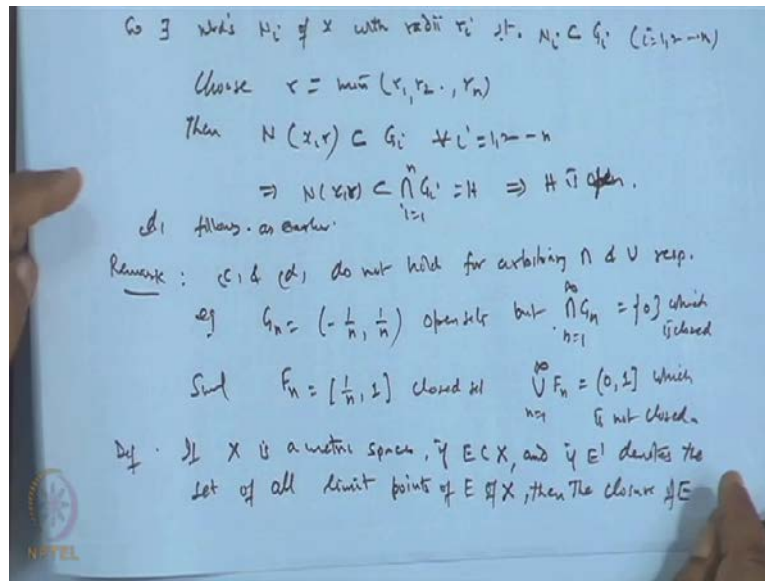 So ∃ nbd's Nᵢ of x with radii rᵢ st. Nᵢ ⊂ Gᵢ (i=1,2---n)
Choose r = min (r₁, r₂ ., rₙ)
Then N(x,r) ⊂ Gᵢ ∀ i=1,2--n
⇒ N(x,r) ⊂ ⋂ⁿᵢ₌₁ Gᵢ = H ⇒ H is open.
(d) follows. as earlier.
Remark : (c) & (d) do not hold for arbitrary ∩ & ∪ resp.
eg Gₙ = (-1/n, 1/n) open sets but ⋂^∞ₙ₌₁ Gₙ = {0} which is closed
Fₙ = [1/n, 1] closed set ⋃^∞ₙ₌₁ Fₙ = (0, 1] which is not closed.
Def . If X is a metric space, if E ⊂ X, and if E' denotes the
set of all limit points of E of X, then The closure of E
NPTEL